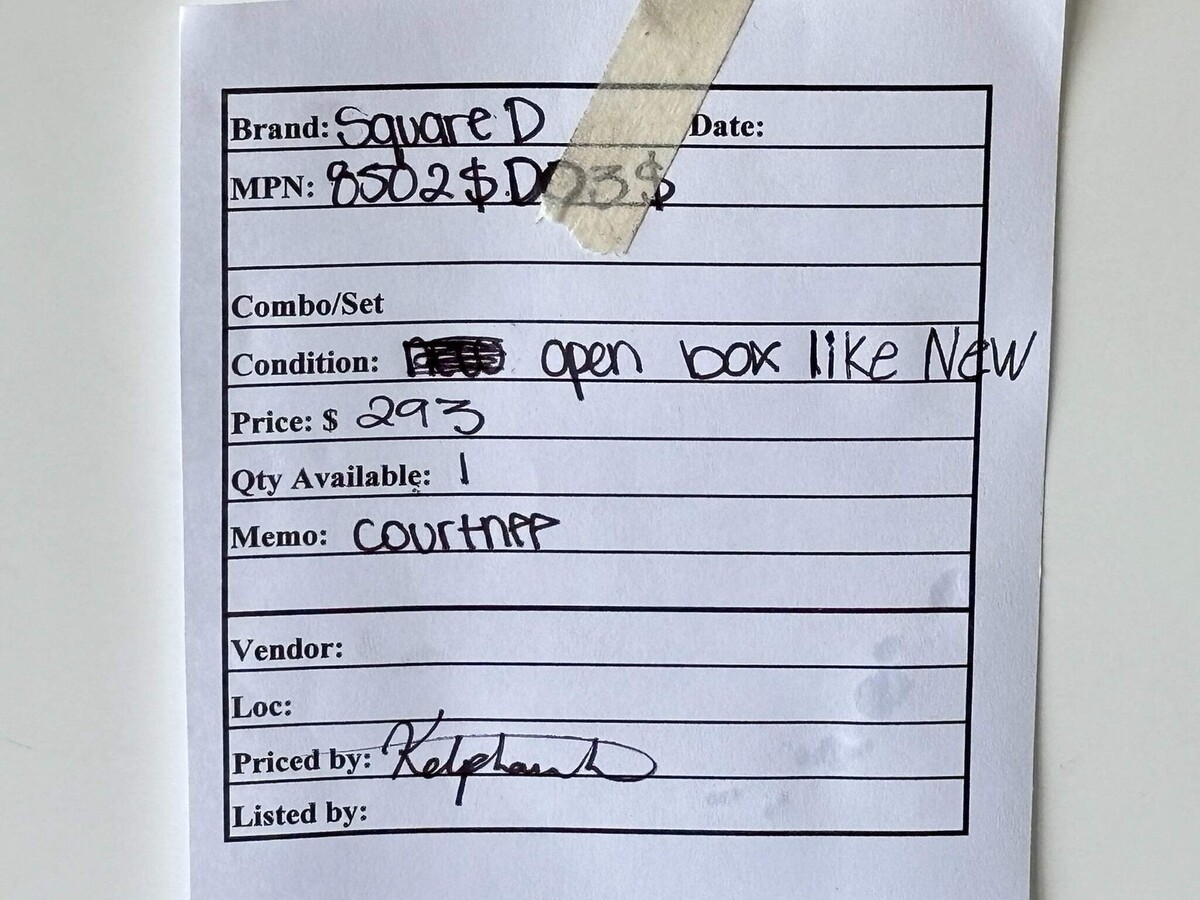 Brand: Square D Date:
MPN: 8502$DO23$
Combo/Set
Condition: open box like New
Price: $ 293
Qty Available: 1
Memo: courtnee
Vendor:
Loc:
Priced by:
Listed by: